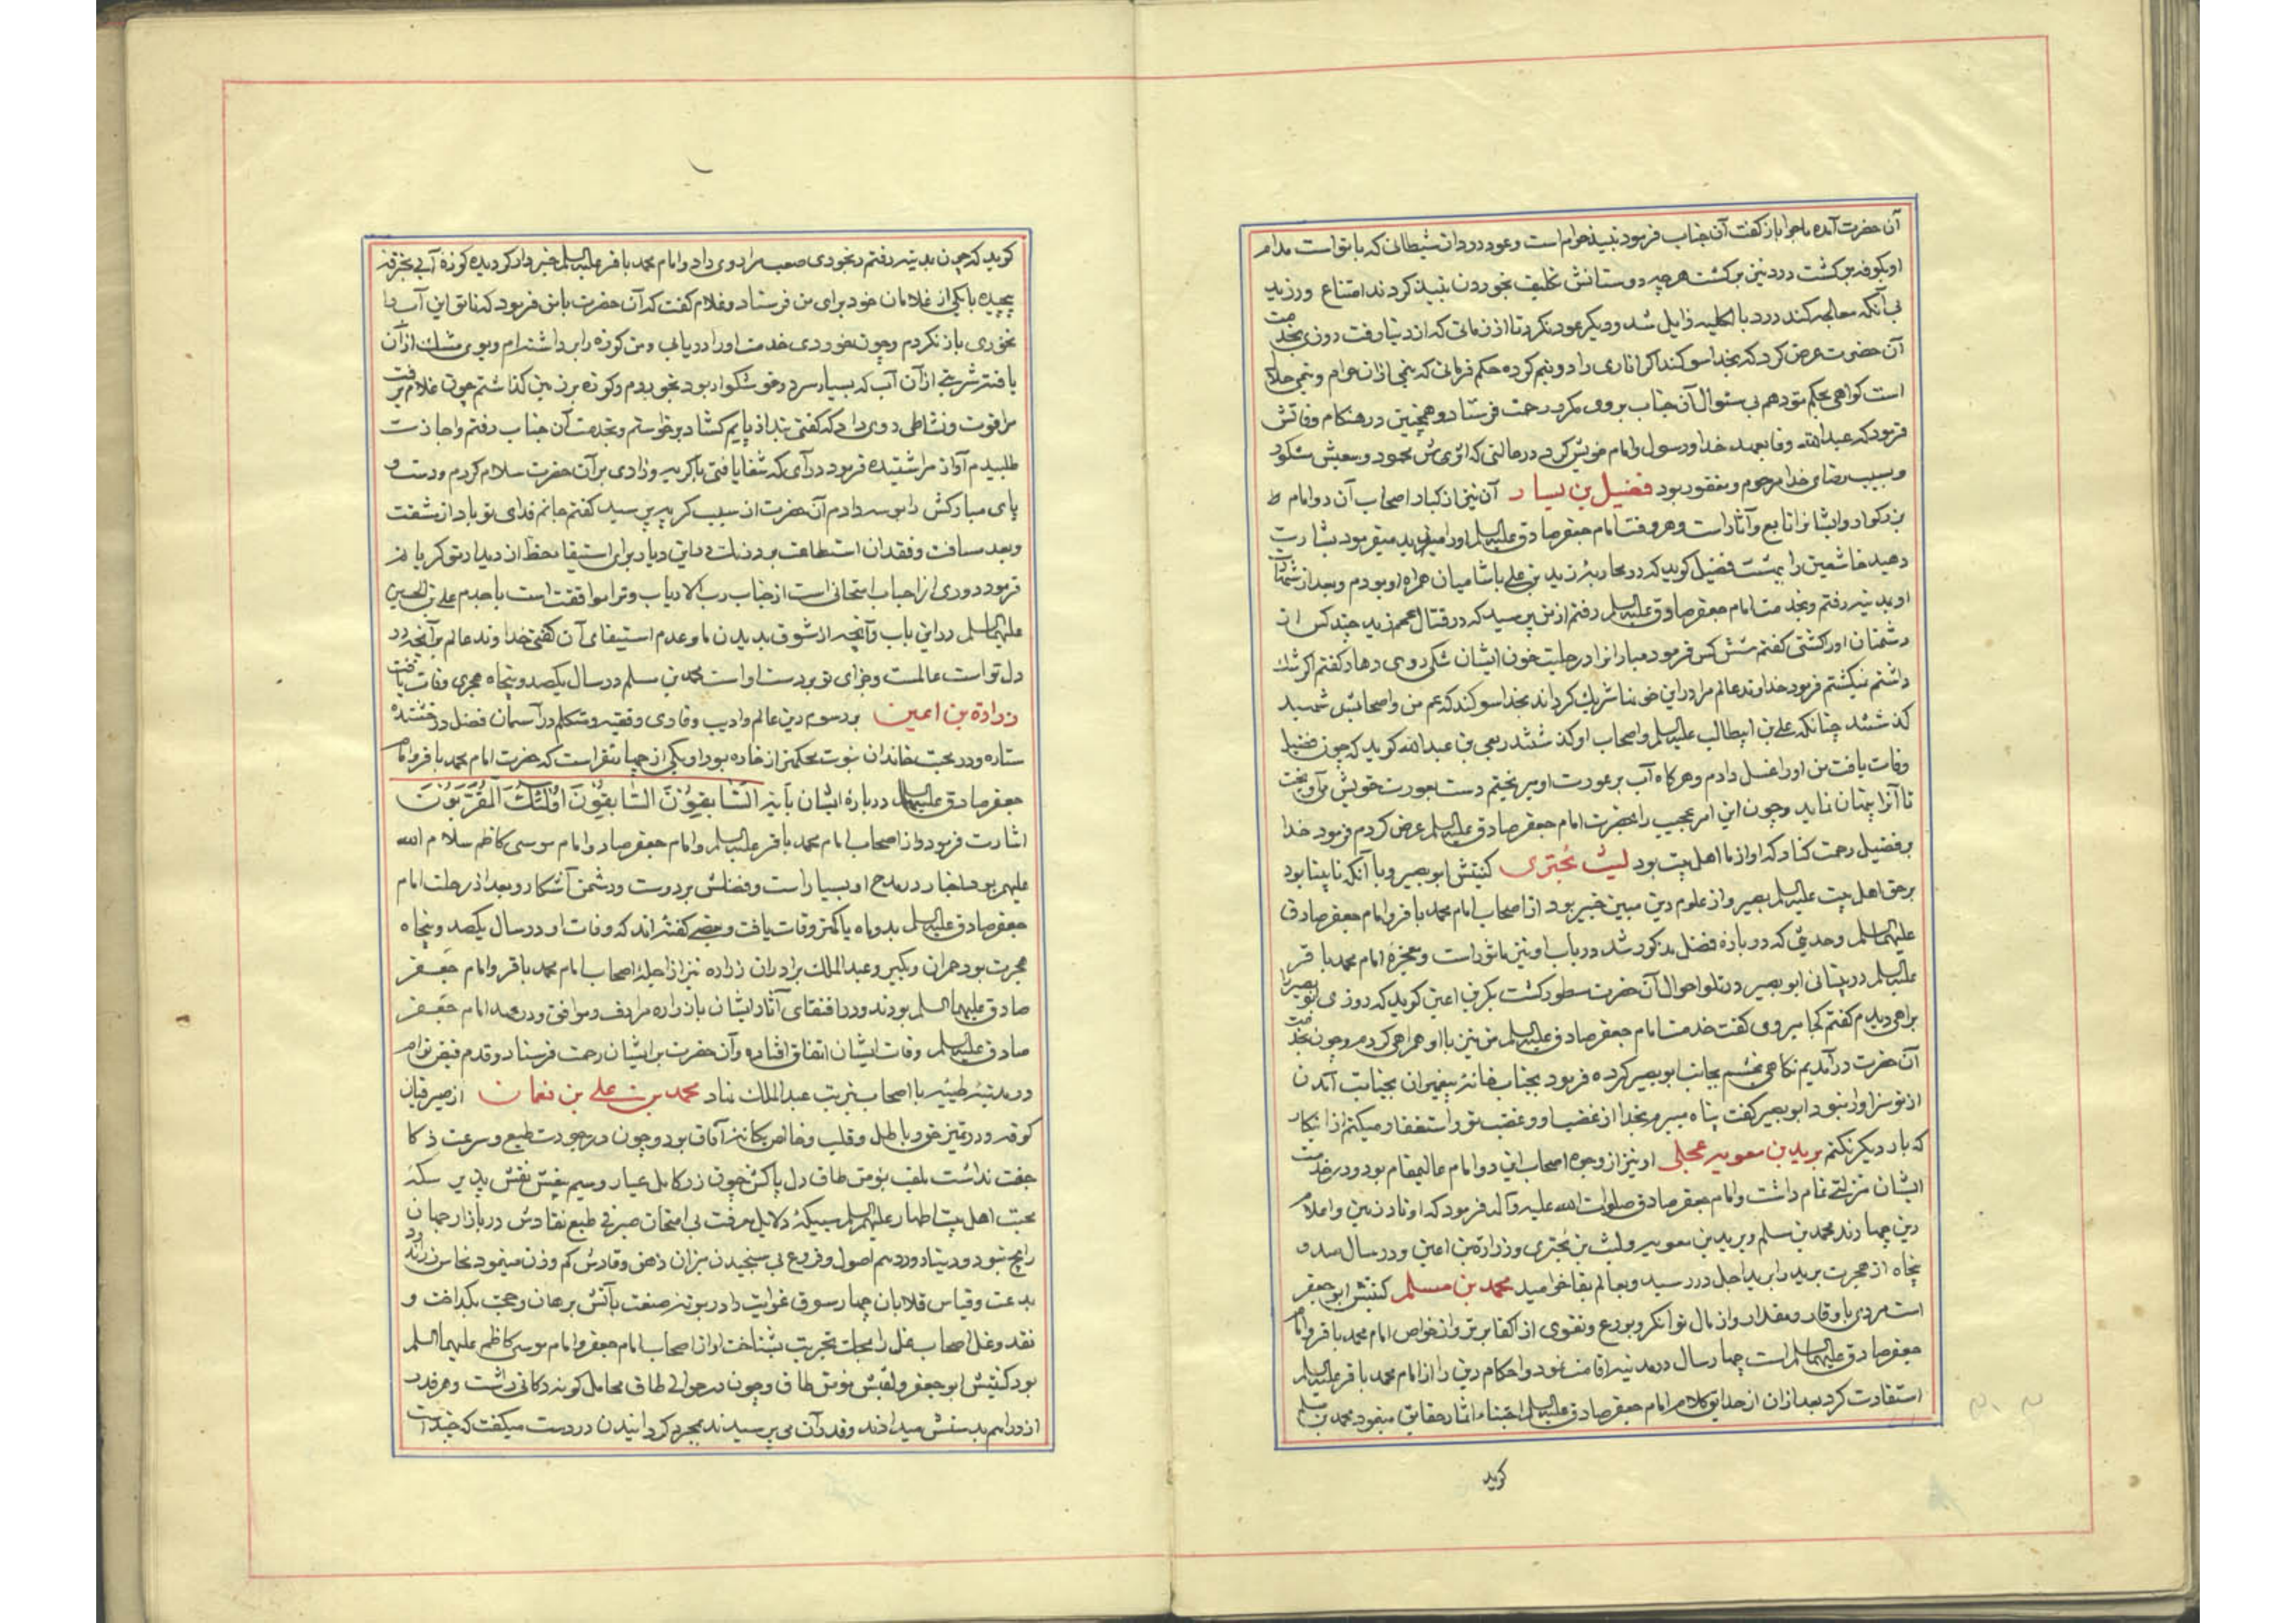 آن حضرت آمده ماجرا باز گفت آن جناب فرمود نبیذ حرام است و عود درد از شیطانی که با تو است مدام
او بکوفه برگشت درد نیز برگشت هرچه دوستانش تکلیف بخوردن نبیذ کردند امتناع ورزید
بی آنکه معالجه کند درد بالکلیه زایل شد و دیگر عود نکرد تا از زمانی که از دنیا رفت روزی بخدمت
آن حضرت عرض کرد که بخدا سوگند اگر اناری را دو نیم کرده حکم فرمائی که نیمی از ان حرام و نیمی حلال
است گواهی بحکم تو دهم بی سئوال آن جناب بر وی مکرر رحمت فرستاد و همچنین در هنگام وفاتش
فرمود که عبدالله وفا بعهد خدا و رسول و امام خویش کرد در حالتی که اثرش محمود و سعیش مشکور
و بسبب رضای خدا مرحوم و مغفور بود فضیل بن یسار آن نیز از کبار اصحاب آن دو امام
بزرکوار و ایشانرا تابع و آثار است و هر وقت امام جعفر صادق علیه السلم او را میدید میفرمود بشارت
دهید خاشعین را ببهشت فضیل کوید که در محاربهٔ زید بن علی با شامیان همراه او بودم و بعد از شهادت
او بمدینه رفتم و بخدمت امام جعفر صادق علیه السلم رفتم از من پرسید که در قتال عمم زید چند کس از
دشمنان او را کشتی کفتم شش کس فرمود مبادا ترا در حلیت خون ایشان شکی روی دهد کفتم اکر شک
داشتم نمیکشتم فرمود خداوند عالم مرا در این خونها شریک کرداند بخدا سوکند که عم من و اصحابش شهید
کذشتند چنانکه علی بن ابیطالب علیه السلم و اصحاب او کذشتند ربعی بن عبدالله کوید که چون فضیل
وفات یافت من او را غسل دادم و هرکاه آب بر عورت او میریختم دست بعورت خویش می‌آویخت
تا آنرا پنهان نماید و چون این امر عجیب را بحضرت امام جعفر صادق علیه السلم عرض کردم فرمود خدا
بر فضیل رحمت کناد که او از ما اهل بیت بود لیث بختری کنیتش ابو بصیر و با آنکه نابینا بود
بر حق اهل بیت علیه السلم بصیر و از علوم دین مبین خبیر بود از اصحاب امام محمد باقر و امام جعفر صادق
علیهما السلم و حدیثی که در بارهٔ فضل مذکور شد در باب او نیز ماثور است و معجزهٔ امام محمد باقر
علیه السلم در بینائی ابو بصیر در تلو احوال آن حضرت مسطور کشت بکر بن اعین کوید که روزی ابو بصیر را
براهی دیدم کفتم کجا میروی کفت خدمت امام جعفر صادق علیه السلم من نیز با او همراهی کردم و چون بخدمت
آن حضرت در آمدیم نکاهی بخشم بجانب ابو بصیر کرده فرمود بجناب خانهٔ پیغمبران بجنابت آمدن
از تو سزاوار نبود ابو بصیر کفت پناه میبرم بخدا از غضب او و غضب تو و استغفار میکنم از اینکار
که بار دیکر نکنم برید بن معویه عجلی او نیز از وجوه اصحاب این دو امام عالیمقام بود و در خدمت
ایشان منزلتی تمام داشت و امام جعفر صادق صلوات الله علیه و آله فرمود که اوتاد زمین و اعلام
دین چهارند محمد بن مسلم و برید بن معویه و لیث بن بختری و زرارة بن اعین و در سال صد و
پنجاه از هجرت برید را برید اجل در رسید و بعالم بقا خرامید محمد بن مسلم کنیتش ابو جعفر
است مردی با وقار و مقدار و از مال توانکر و بورع و تقوی از اکفا برتر و از خواص امام محمد باقر و امام
جعفر صادق علیهما السلم است چهار سال در مدینه اقامت نمود و احکام دین را از امام محمد باقر علیه السلم
استفادت کرد بعد از ان از حدایق کلام امام جعفر صادق علیه السلم اجتناء اثمار حقایق مینمود محمد بن مسلم
کوید
کوید که چون بمدینه رفتم رنجوری صعب مرا روی داد و امام محمد باقر علیه السلم خبردار کردیده کوزهٔ آبی بخرقه
پیچیده با یکی از غلامان خود برای من فرستاد و غلام کفت که آن حضرت با من فرمود که تا تو این آب را
نخوری باز نکردم و چون بخوردی خدمت او را دریابی و من کوزه را برداشته‌ام و بوی مشک از آن
یافتم شربتی از آن آب که بسیار سرد و خوشکوار بود بخوردم و کوزه بر زمین کذاشتم چون غلام برفت
مرا قوت و نشاطی روی داد که کفتی بند از پایم کشاد برخواستم و بخدمت آن جناب رفتم و اجازت
طلبیدم آواز مرا شنیده فرمود در آی که شفا یافتی با کریه و زاری بر آن حضرت سلام کردم و دست و
پای مبارکش را بوسه دادم آن حضرت از سبب کریه پرسید کفتم جانم فدای تو باد از مشقت
و بعد مسافت و فقدان استطاعت بر درنک در این دیار برای استیفاء حظ از دیدار تو کریانم
فرمود دوری از احباب امتحانی است از جناب رب الارباب و ترا موافقت است با جدم علی بن الحسین
علیهما السلم در این باب و آنچه از شوق بدیدن ما و عدم استیفای آن کفتی خداوند عالم بر آنچه در
دل تو است عالمست و جزای تو بر دست اوست محمد بن مسلم در سال یکصد و پنجاه هجری وفات یافت
زرارة بن اعین برسوم دین عالم و ادیب و قاری و فقیه و متکلم در آسمان فضل درخشنده
ستاره و در محبت خاندان نبوت محکمتر از خاره بود او یکی از چهار نفر است که حضرت امام محمد باقر و امام
جعفر صادق علیهما السلم در بارهٔ ایشان بآیه السَّابِقُونَ السَّابِقُونَ أُولَٰئِكَ الْمُقَرَّبُونَ
اشارت فرمود و از اصحاب امام محمد باقر علیه السلم و امام جعفر صادق و امام موسی کاظم سلام الله
علیهم بود اخبار در مدح او بسیار است و فضلش بر دوست و دشمن آشکار و بعد از رحلت امام
جعفر صادق علیه السلم بدو ماه یا کمتر وفات یافت و بعضی کفته‌اند که وفات او در سال یکصد و پنجاه
هجرت بود حمران و بکیر و عبدالملک برادران زراره نیز از اجلهٔ اصحاب امام محمد باقر و امام جعفر
صادق علیهما السلم بودند و در اقتفای آثار ایشان با زراره مرادف و موافق و در عهد امام جعفر
صادق علیه السلم وفات ایشان اتفاق افتاده و آن حضرت بر ایشان رحمت فرستاد و قدم فیض توام
در مدینهٔ طیبه با اصحاب بتربت عبدالملک نهاد محمد بن علی بن نعمان از صیرفیان
کوفه و در تمیز نقود باطل و قلب و خالص یکانهٔ آفاق بود و چون در جودت طبع و سرعت ذکا
جفت نداشت ملقب بمؤمن طاق دل پاکش چون زر کامل عیار و سیم بیغش نقش پذیر سکهٔ
محبت اهل بیت اطهار علیهم السلم سبیکهٔ دلایل معرفت بی امتحان صیرفی طبع نقادش در بازار جهان
رایج نبود و دینار و درهم اصول و فروع بی سنجیدن میزان ذهن وقادش کم وزن مینمود نحاس زراندود
بدعت و قیاس قلابان چهارسوق غوایت را در بوتهٔ صنعت بآتش برهان و حجت بکداخت و
نقد دغل اصحاب ضلال را بمحک تجربت بشناخت او از اصحاب امام جعفر و امام موسی کاظم علیهما السلم
بود کنیتش ابو جعفر و لقبش مؤمن طاق و چون در حوالی طاق محامل کوفه دکانی داشت و هر قدر
از دراهم بدستش میدادند و قدر آن می پرسیدند بمجرد کردانیدن در دست میکفت که چند است